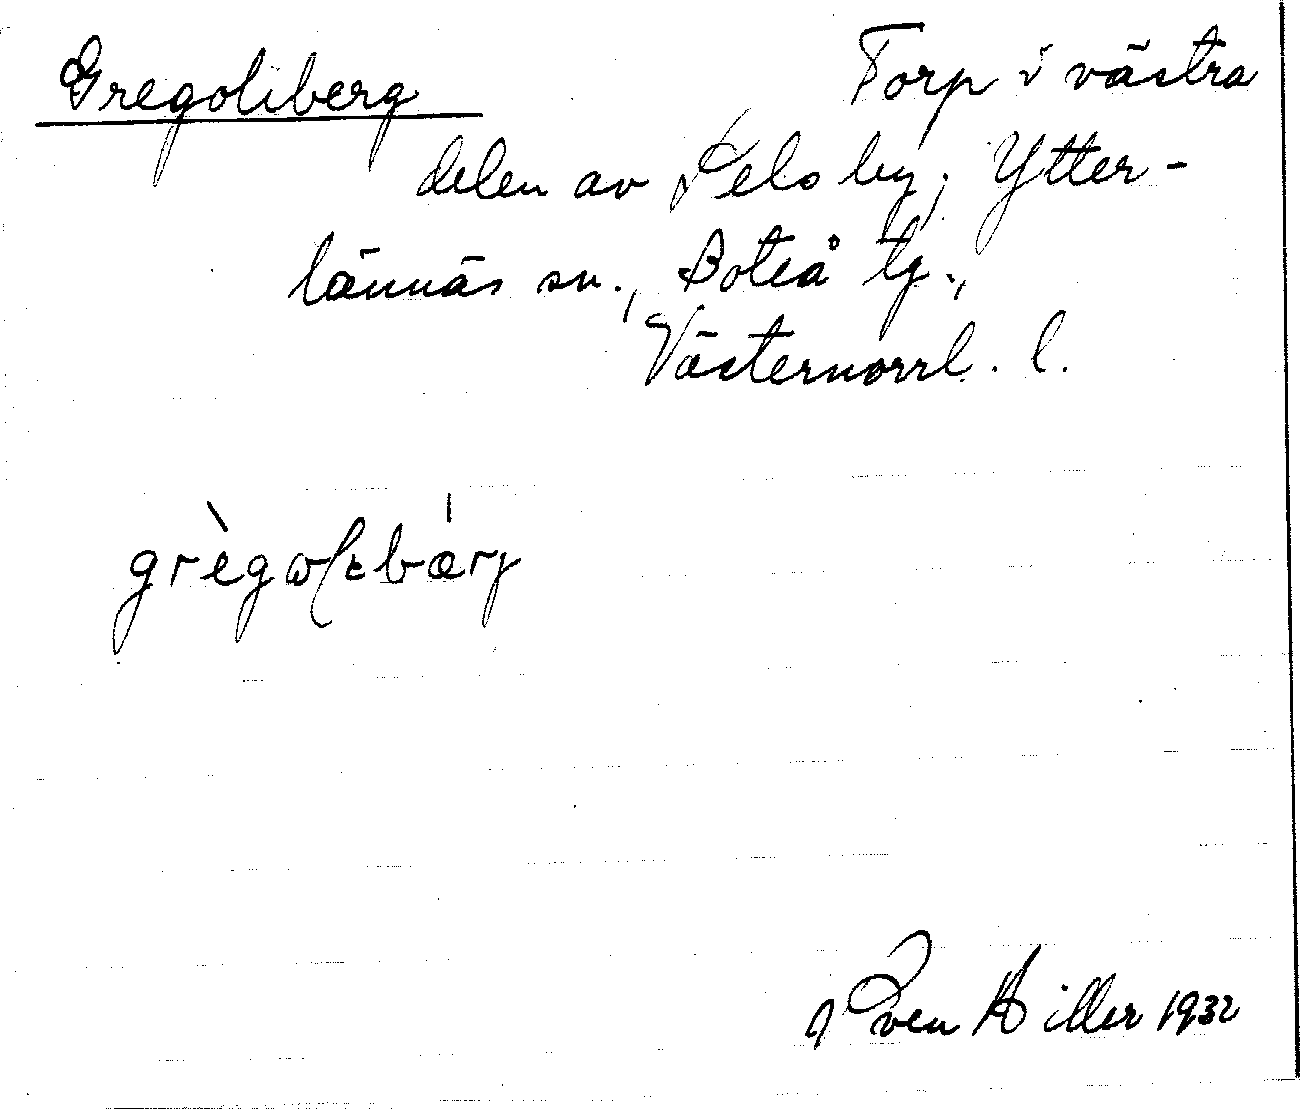 Gregoliberg Torp i västra
delen av Pelsby, Ytter-
lännäs sn., Boteå tg.,
Västernorrl. l.
grègωlɛbærj
Sven Hiller 1932